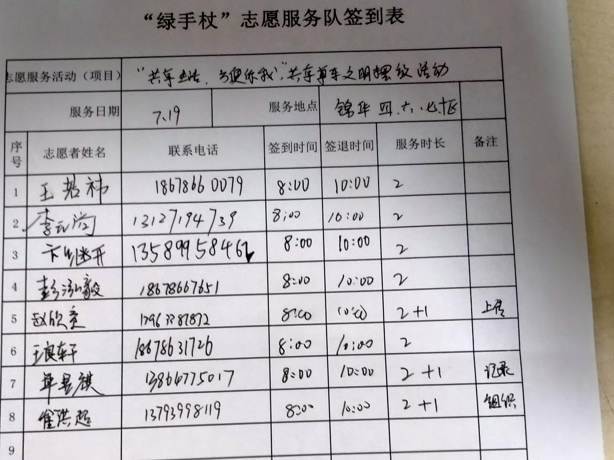 “绿手杖”志愿服务队签到表
志愿服务活动（项目） “共享生活，方便你我”，共享单车文明摆放活动
服务日期 7.19 服务地点 锦华四、六、七区
序号 志愿者姓名 联系电话 签到时间 签退时间 服务时长 备注
1 王若祎 18678660079 8:00 10:00 2
2 李 13127194739 8:00 10:00 2
3 卞继开 1358995846 8:00 10:00 2
4 彭泓毅 18678667651 8:00 10:00 2
5 赵欣 8:00 10:00 2+1 上传
6 18678631726 8:00 10:00 2
7 单昱祺 13864775017 8:00 10:00 2+1 记录
8 崔洪超 13793998119 8:00 10:00 2+1 组织
9